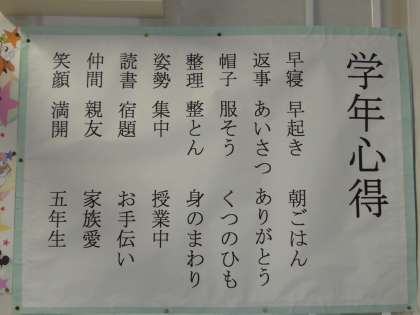 学年心得
早寝 早起き 朝ごはん
返事 あいさつ ありがとう
帽子 服そう くつのひも
整理 整とん 身のまわり
姿勢 集中 授業中
読書 宿題 お手伝い
仲間 親友 家族愛
笑顔 満開 五年生